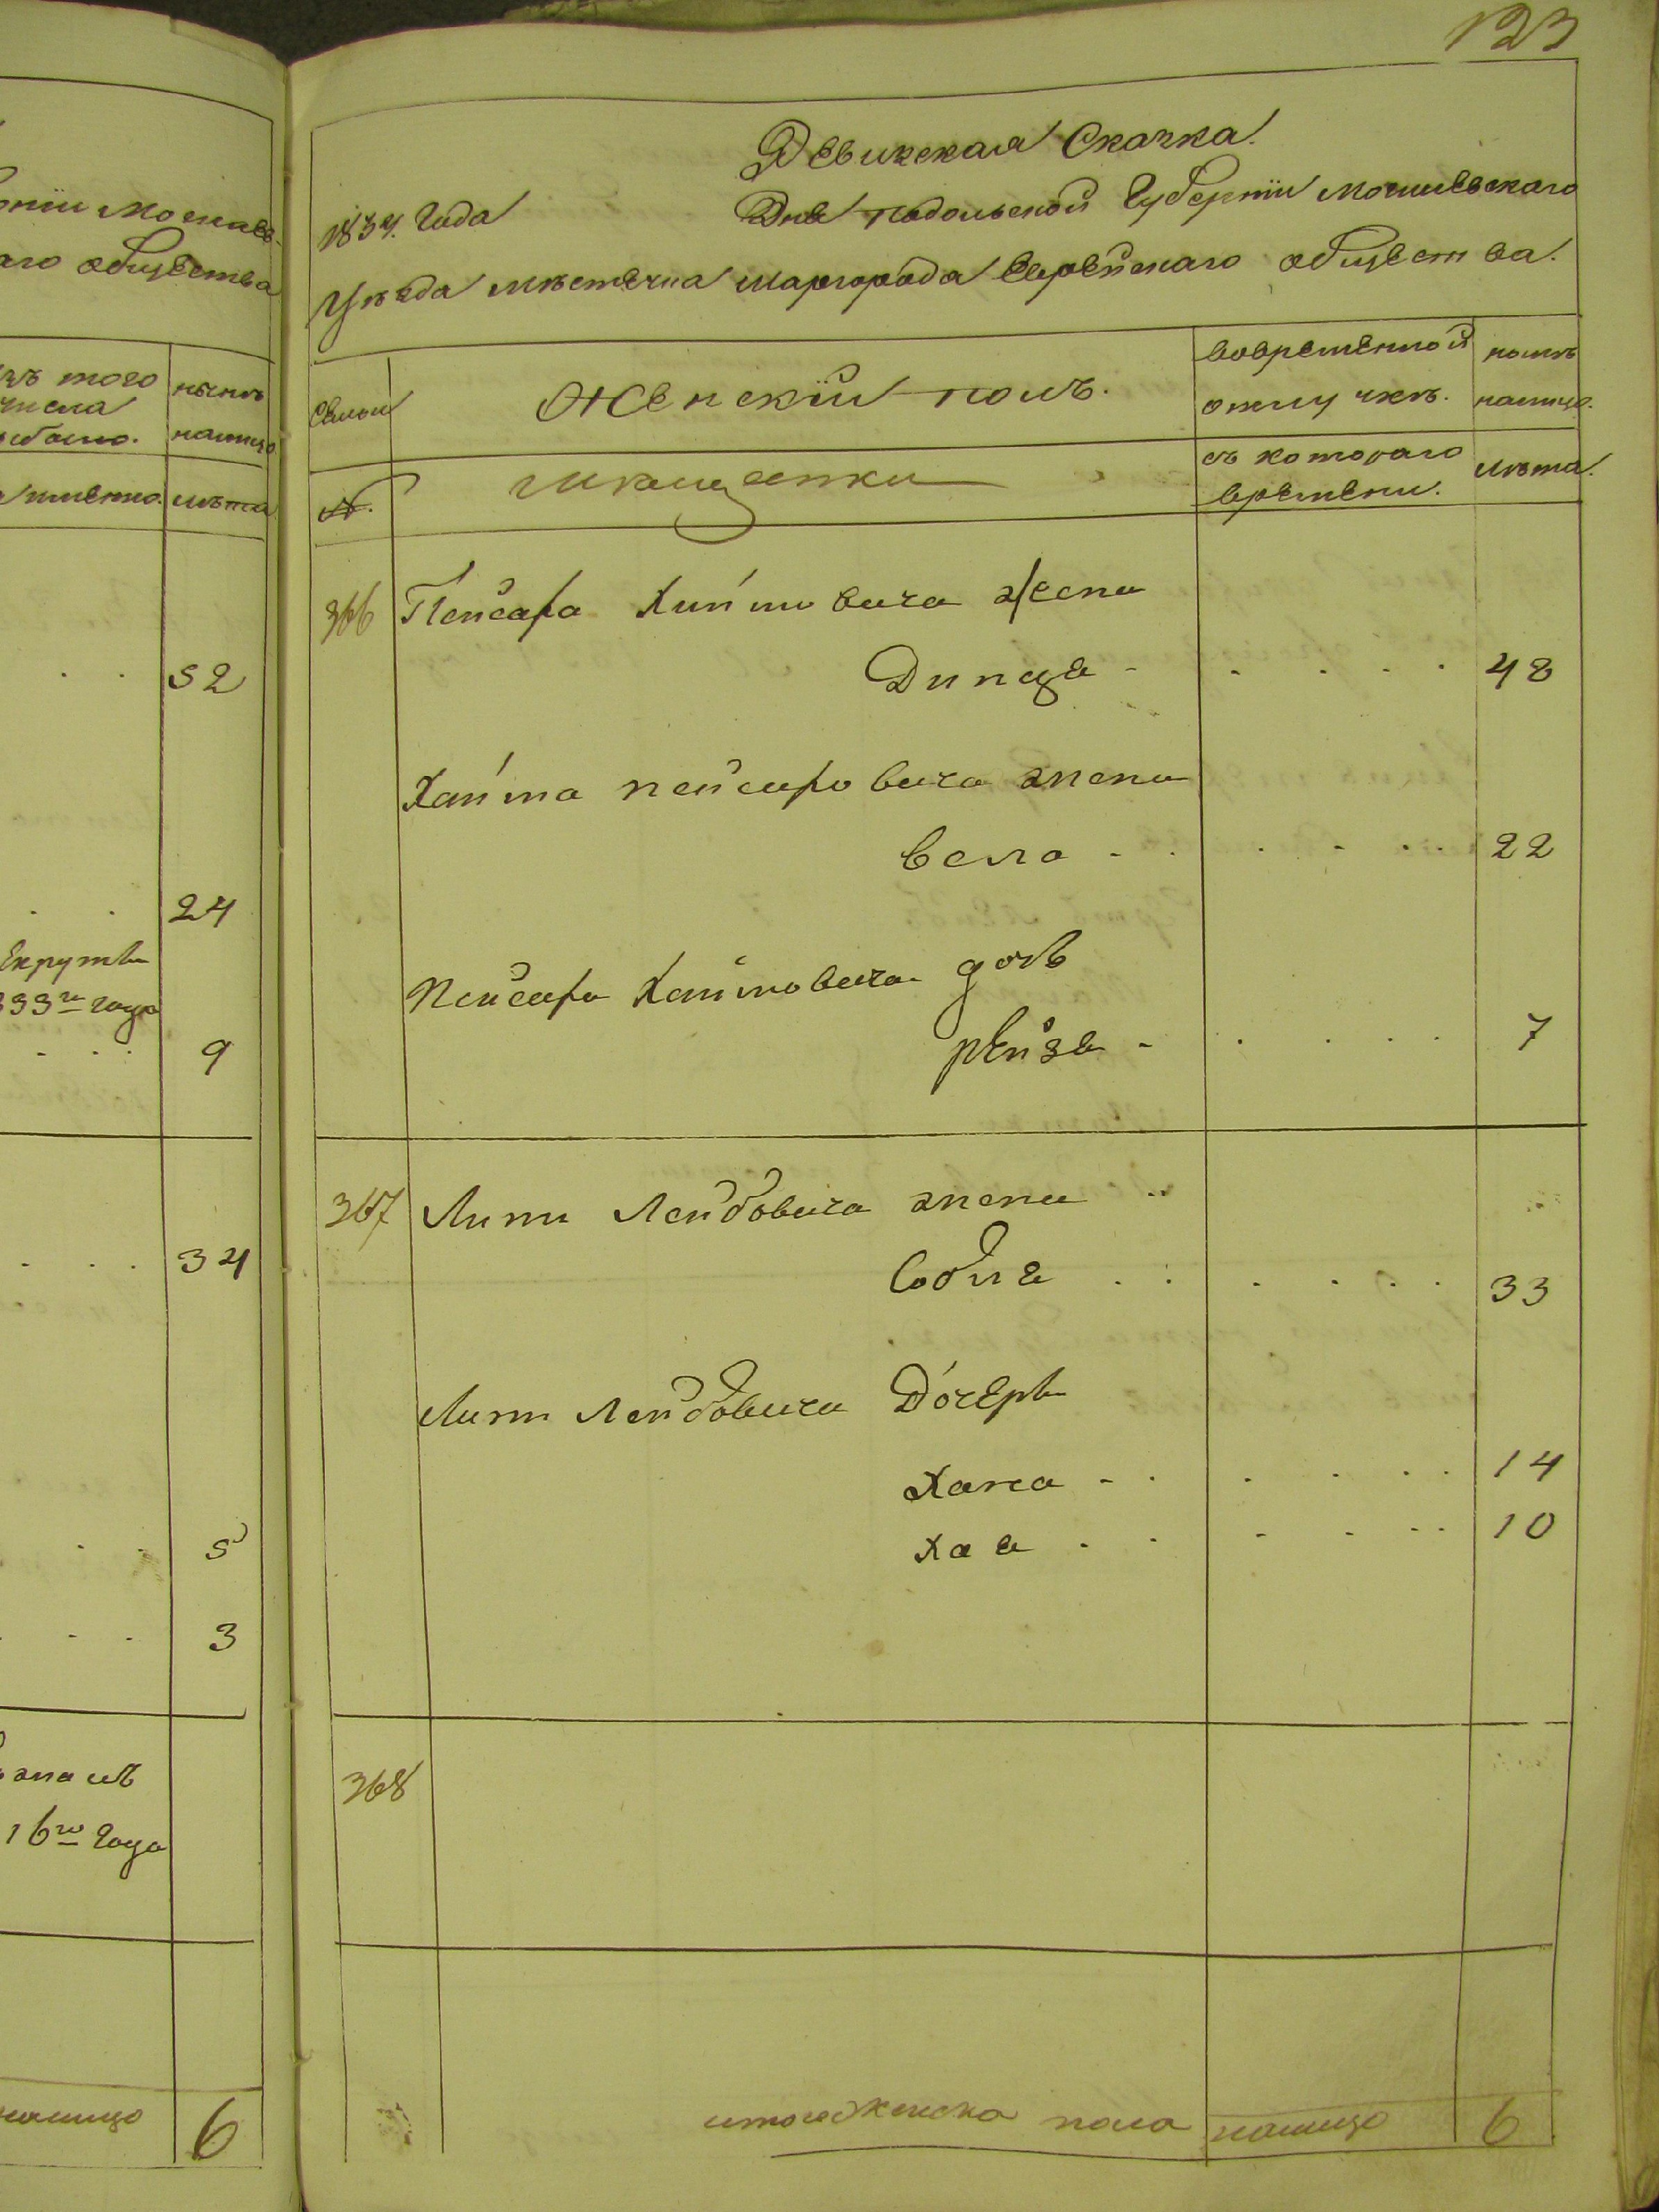 123
опіи Могилев-
аго общества
изъ того числа выбыло.
нынѣ налицо
лѣта
52
24
Рекрутъ
833го года
9
34
5
3
16го Года
налицо
6
Ревижская Скачка.
1834. Года Дня подольской Губерніи могилевскаго
Уѣзда мѣстечка шаргорода Еврейскаго общества.
Семьи
Женскій полъ.
вовременной отлучкѣ.
нынѣ налицо.
№.
Мѣщанки
съ котораго времени.
лѣта.
366 Пейсаха Хаимовича жена
Динця - - - - - 48
Хаима пейсаховича жена
вела - - - - - 22
Пейсаха Хаимовича дочь
рейзя - - - - - 7
367 Липи Лейбовича жена
Собля - - - - - 33
Липи Лейбовича Дочерь
Хана - - - - - 14
Хая - - - - - 10
368
итого женска пола налицо 6